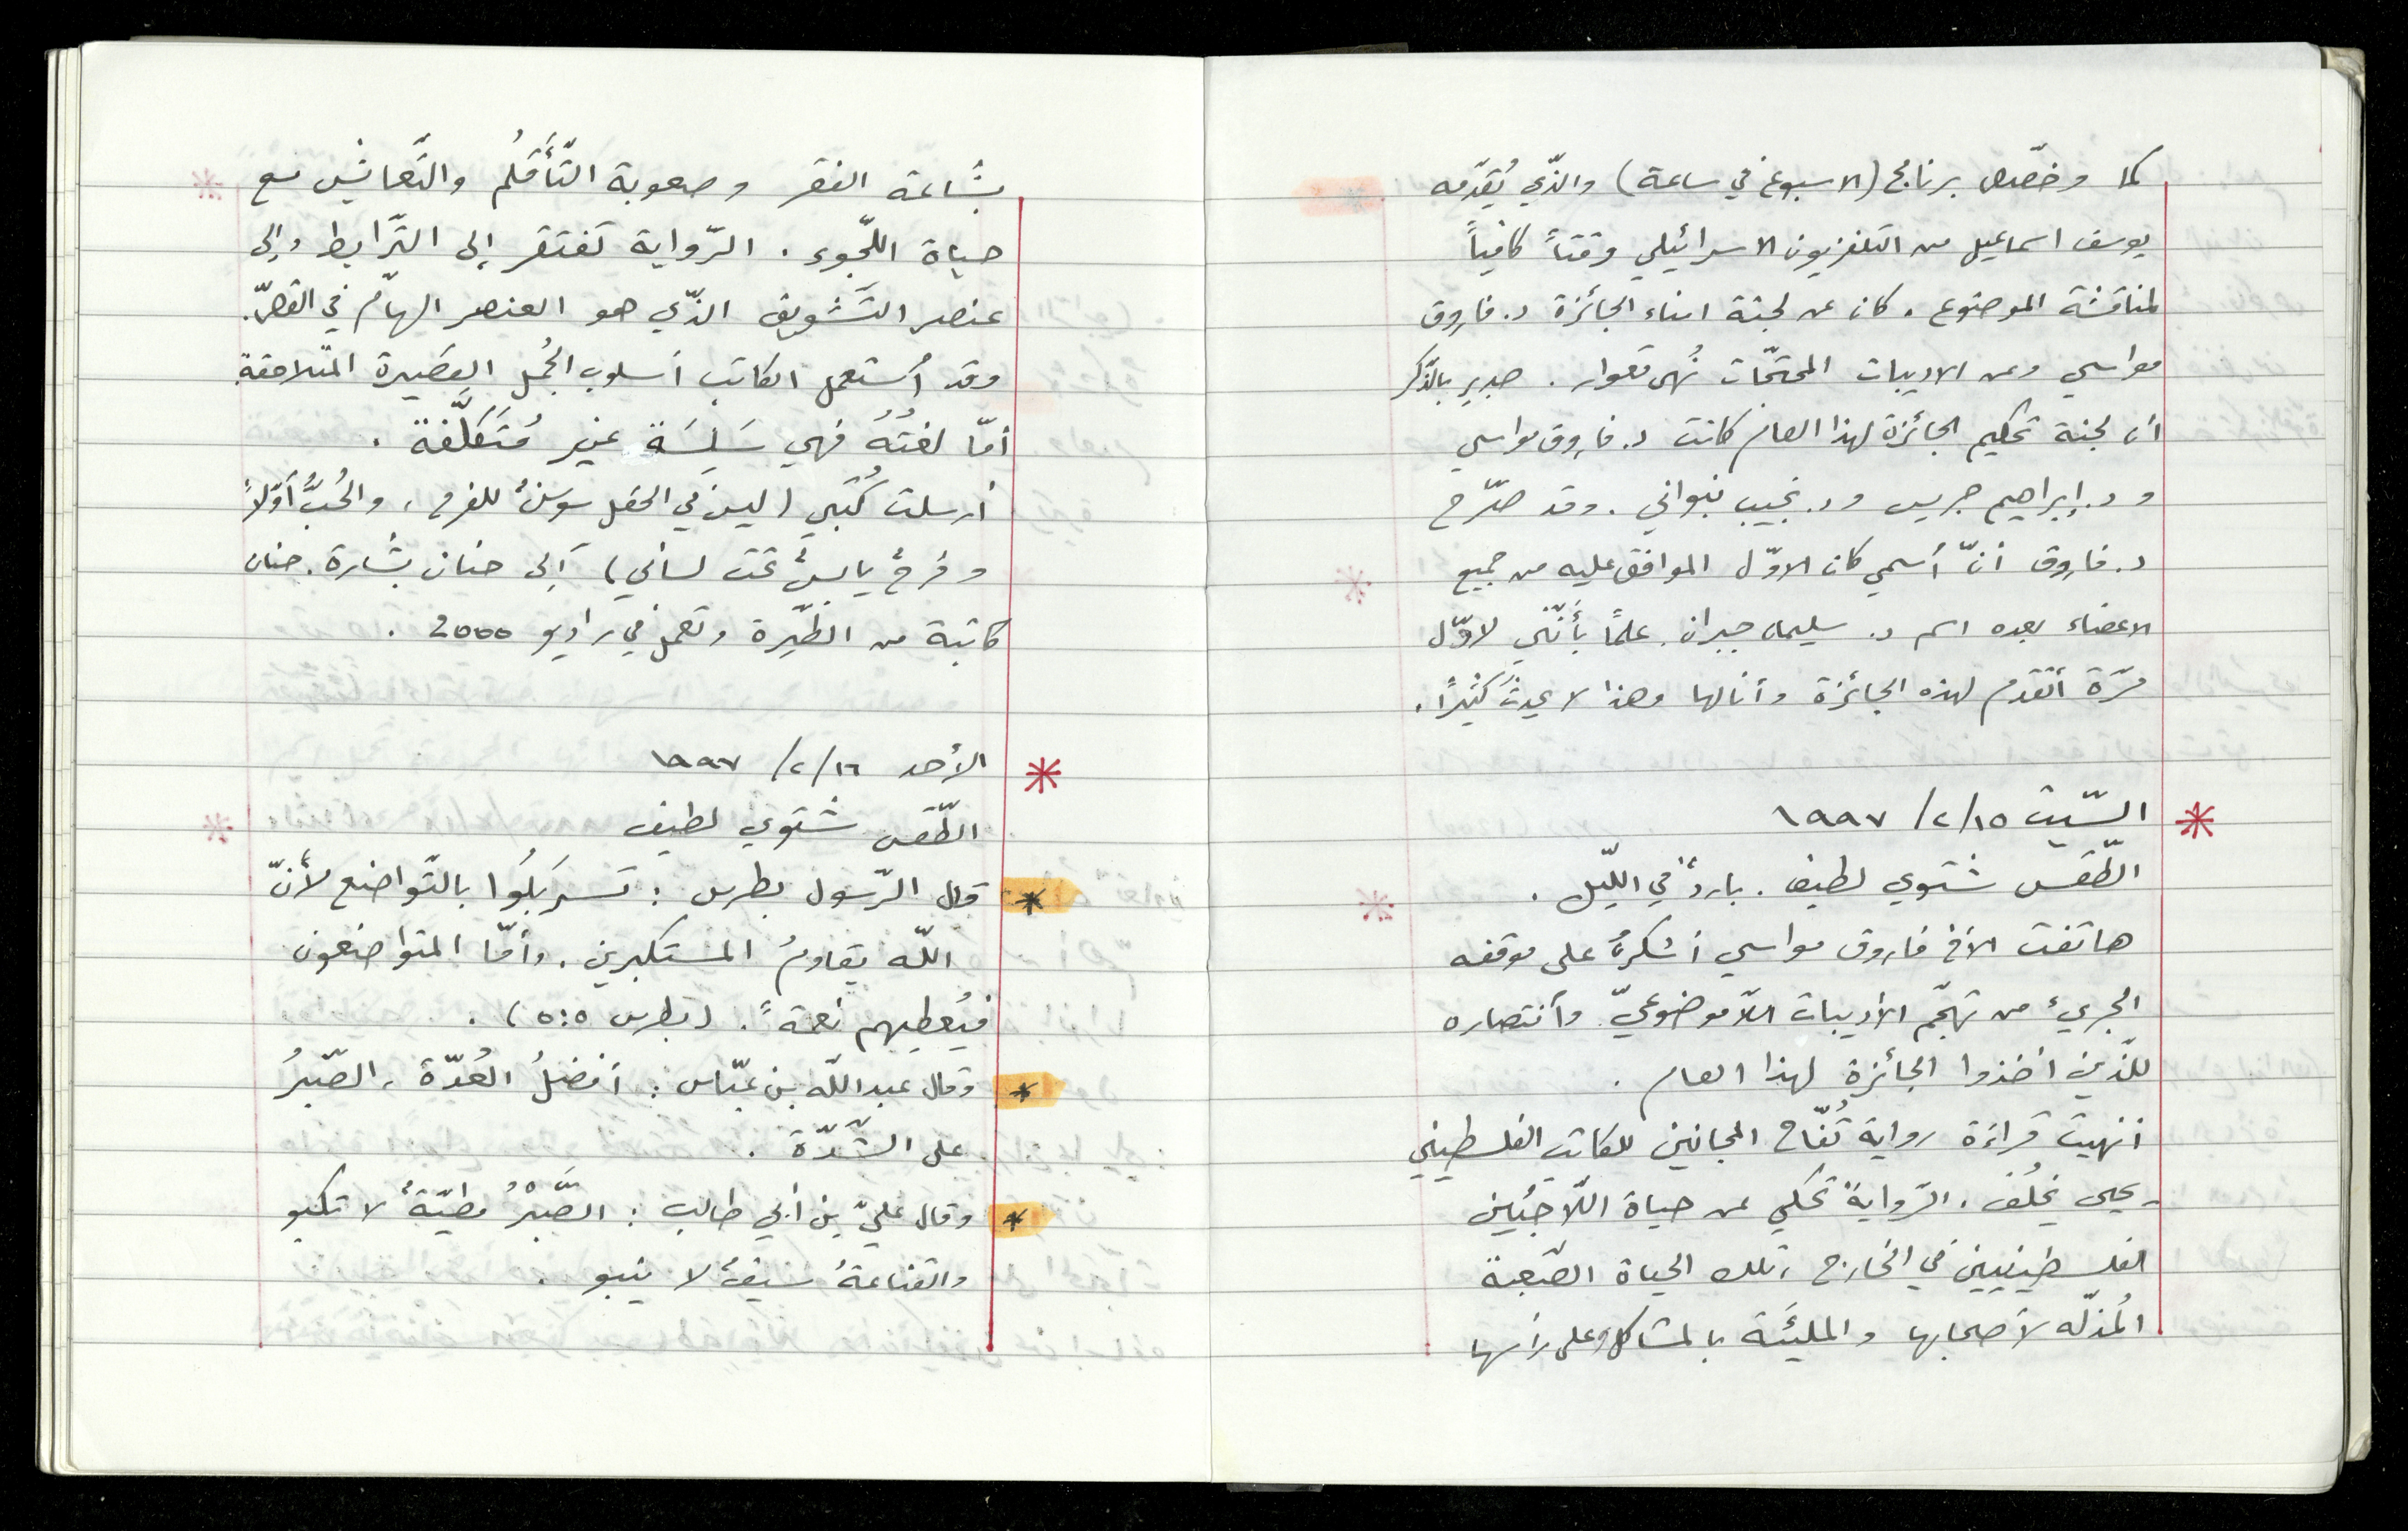 كما وخصّص برنامج (الاسبوع في ساعة) والذّي يُقدّمه
يوسف اسماعيل من التلفزيون الاسرائيلي وقتاً كافياً
لمناقشة الموضوع. كان عن لجنة امناء الجائزة د. فاروق
مواسي وعن الاديبات المحتجّات نُهى قعوار. جدير بالذّكر
أن لجنة تحكيم الجائزة لهذا العام كانت د. فاروق مواسي
و د. إبراهيم جريس ود. نجيب نبواني. وقد صرّح
د. فاروق أنّ أسمي كان الاوّل الموافق عليه من جميع
الاعضاء بعده اسم د. سليمان جبران. علماً بأنّني لاوّل
مرّة أتقدم لهذه الجائزة وأنالها وهذا لا يحدث كثيراً.
السّبت ١٥/٢/١٩٩٧
الطّقس شتوي لطيف. باردٌ في الليّل.
هاتفت الأخ فاروق مواسي أشكرهُ على موقفه
الجريء من تهجّم الأديبات اللاّموضوعيّ وأنتصاره
للذّين أخذوا الجائزة لهذا العام.
أنهيت قراءة رواية تُفّاح المجانين للكاتب الفلسطيني
يحيى يخلُف. الرّوايةُ تحكي عن حياة اللّاجئين
الفلسطينيين في الخارج، تلك الحياة الصّعبة
المُذلّه لأصحابها والمليئَة بالمشاكل وعلى رأسها
بشاعة الفقر وصعوبة التّأَقلُم والتّعايش مع
حياة اللّجوء. الرّواية تفتقر إلى التّرابط وإلى
عنصر التّشويق الذّي هو العنصر الهامّ في القصّ.
وقد أُستعمل الكاتب أسلوب الجُمل القصيرة المتلاحقة
أمّا لغتُهُ فهي سَلِسَة غير مُتَكلَّفة.
أرسلت كُتبي (ليس في الحقل سوسنٌ للفرح، والحُبُّ أوّلاً
وفرحٌ يابسٌ تحت لساني) إلى حنان بشارة. حنان
كاتبة من الطّيرة وتعمل في راديو 2000.
الأحد ١٦/٢/١٩٩٧
الطّقس شتوي لطيف
قال الرّسول بطرس: تسربَلُوا بالتّواضع لأنّ
اللّه يقاومُ المستكبرين. وأمّا المتواضعون
فيُعطيهم نعمةً. (بطرس ٥:٥).
وقال عبد اللّه بن عبّاس: أفضلُ العُدّة، الصّبرُ
على الشّدّة.
وقال عليّ بن أبي طالب: الصَّبْرُ مطيّةٌ لا تكبو
والقناعةُ سيفٌ لا ينبو.